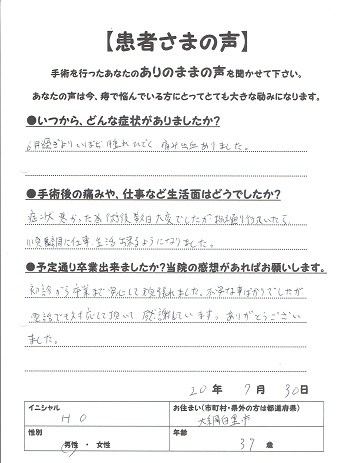 【患者さまの声】
手術を行ったあなたのありのままの声を聞かせて下さい。
あなたの声は今、痔で悩んでいる方にとってとても大きな励みになります。
●いつから、どんな症状がありましたか?
6月過ぎより いぼ痔 腫れ ひどく 痛み出血ありました。
●手術後の痛みや、仕事など生活面はどうでしたか?
症状 悪かった為 術後 数日 大変でしたが
順調に仕事 生活 出来るようになりました。
●予定通り卒業出来ましたか?当院の感想があればお願いします。
初診から卒業まで 安心して 頑張れました。不安な事ばかりでしたが
電話でも対応して頂いて、感謝しています。ありがとうござい
ました。
20 年 7 月 30 日
イニシャル お住まい(市町村・県外の方は都道府県)
H O 大網白里市
性別 年齢
男性 ・ 女性 37 歳